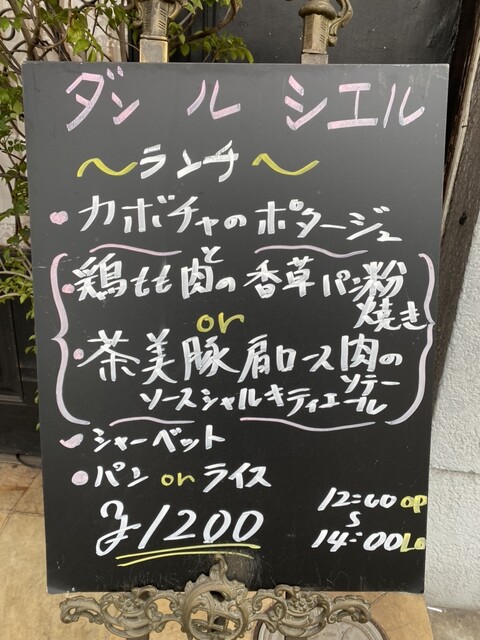 ダン ル シエル
〜ランチ〜
・カボチャのポタージュ
・鶏もも肉の香草パン粉焼き
or
・茶美豚肩ロース肉のソテー
ソースシャルキティエール
・シャーベット
・パン or ライス
¥1200
12:00 op
〜
14:00 Lo